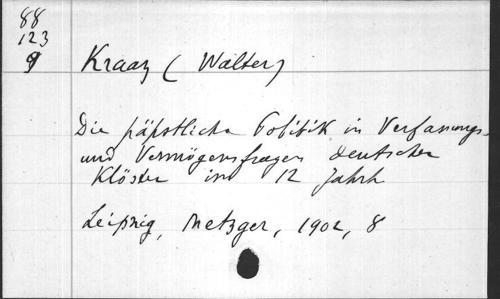 88
123
9
Kraaz ( Walter)
Die päpstliche Politik in Verfassungs-
und Vermögensfragen deutscher
Klöster im 12 Jahrh
Leipzig, Metzger, 1902, 8